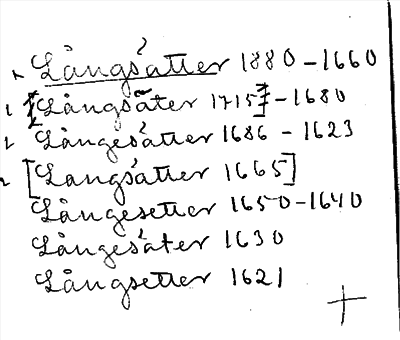 Långsätter 1880-1660
[Långsäter 1715]-1680
Långesätter 1686-1623
[Langsätter 1665]
Långesetter 1650-1640
Långesäter 1630
Långsetter 1621